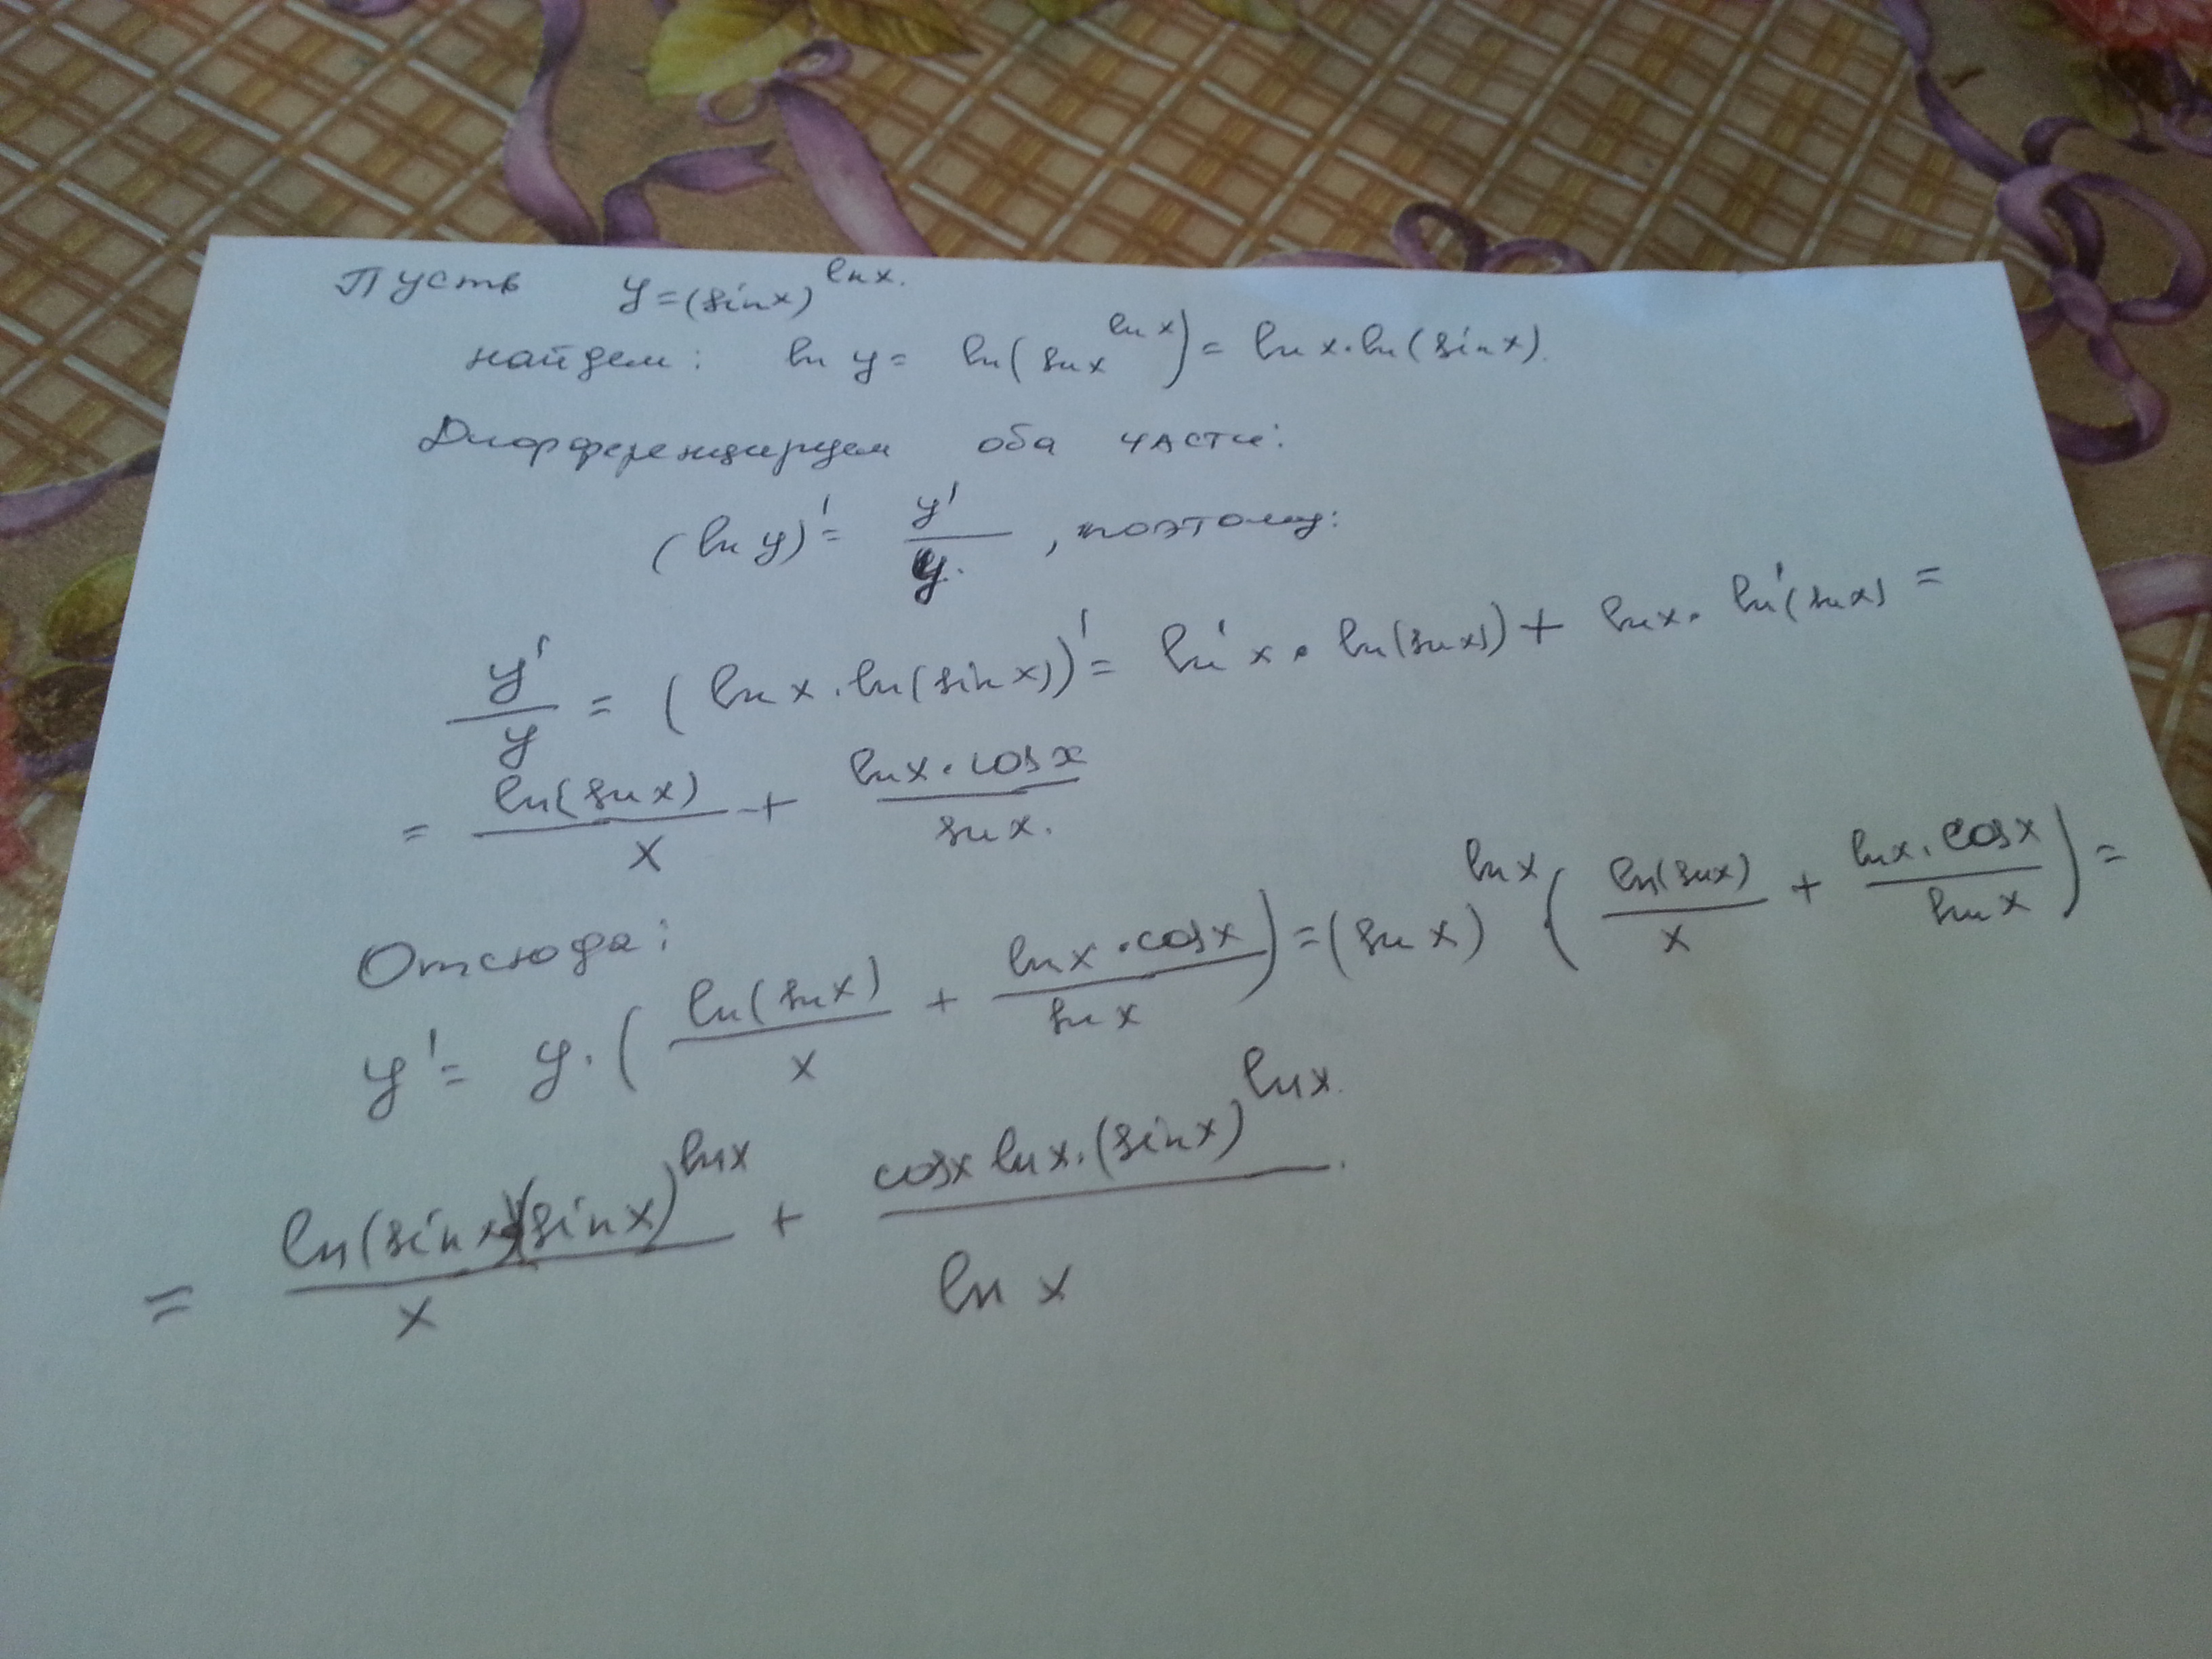 Пусть y=(sinx)^lnx.
найдем: ln y= ln(sinx^ln x)= ln x·ln(sinx).
Дифференцируем оба части:
(ln y)'= y'/y. , поэтому:
y'/y = (ln x·ln(sin x))'= ln'x·ln(sinx)+ lnx·ln'(sinx) =
= ln(sinx)/x + lnx·cosx/sinx.
Отсюда:
y'= y·(ln(sinx)/x + lnx·cosx/sinx)=(sinx)^lnx(ln(sinx)/x + lnx·cosx/sinx)=
= ln(sinx)(sinx)^lnx/x + cosx lnx·(sinx)^lnx./ln x